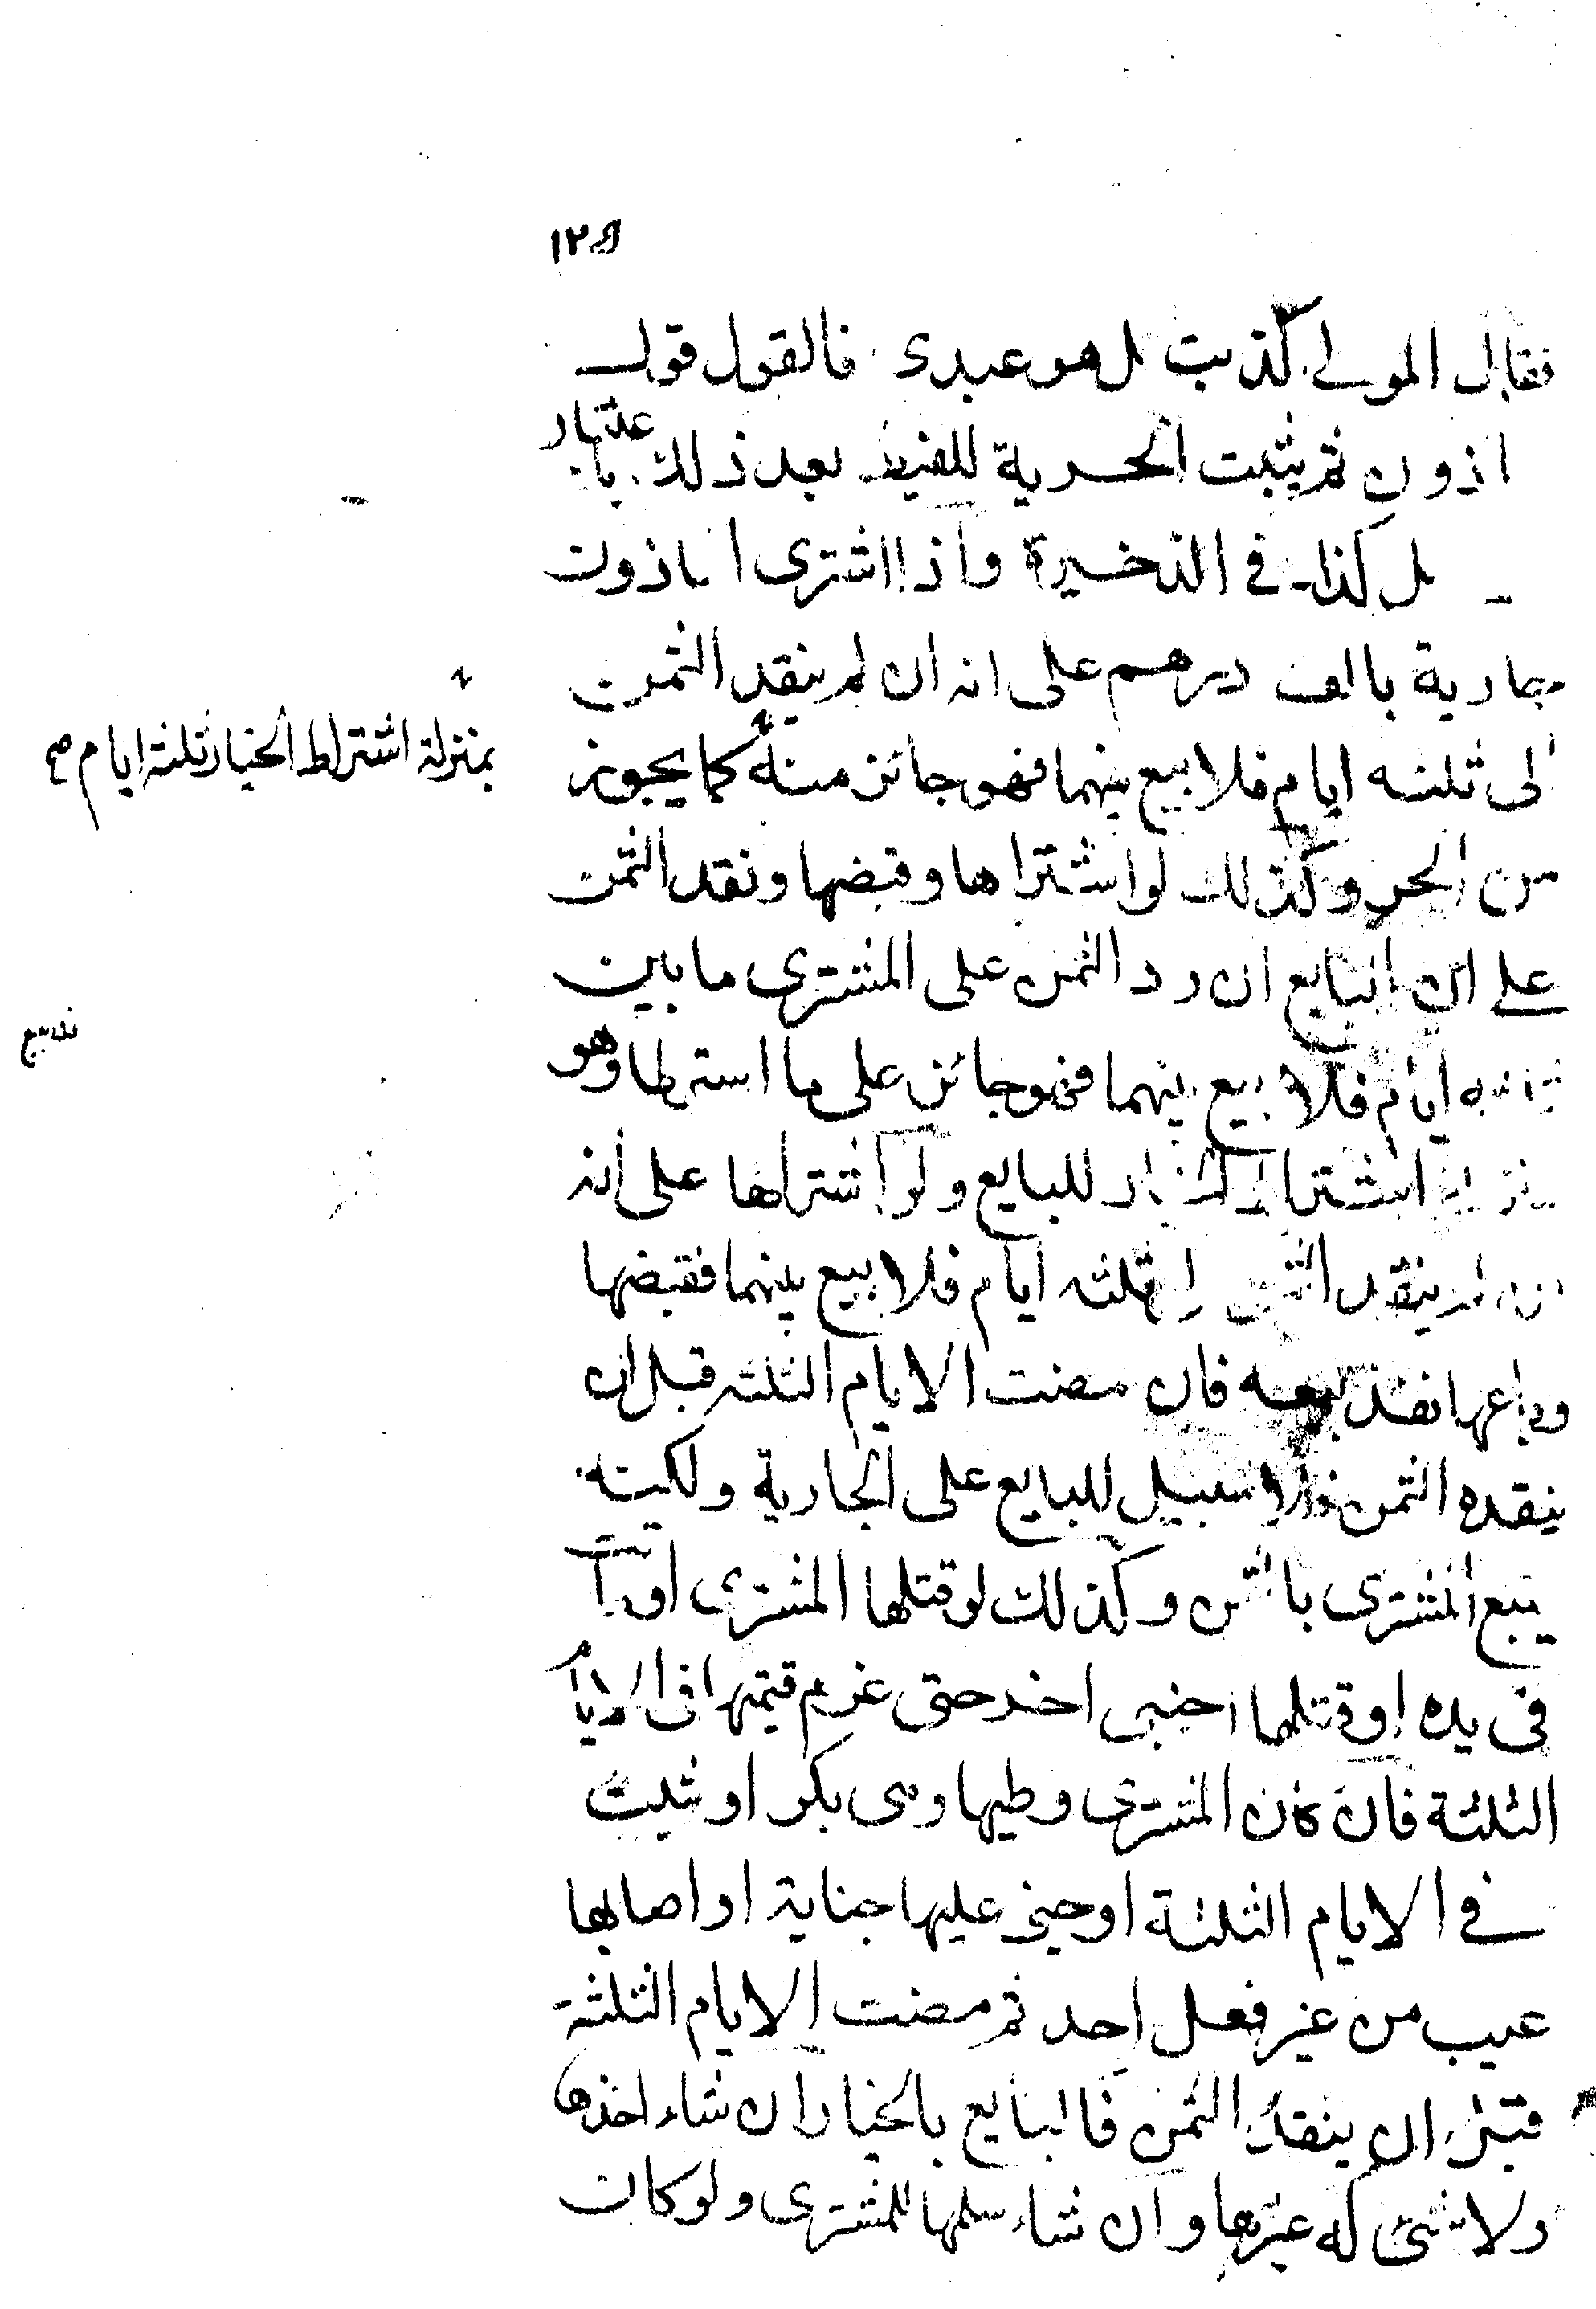 ١٢٥
فقال المولى كذبت بل هو عبدى فالقول قول
اذون ثم يثبت الحرية للقيط بعد ذلك باعتبار
بل كذا فى الذخيرة واذا اشترى اماذون
جارية بالف درهم على انه ان لم ينقد الثمن
الى ثلثه ايام فلا بيع بينهما فهو جائز منه كما يجوز
بمنزلة اشتراط الخيار ثلثه ايام صح
من الحر وكذلك لو اشتراها وقبضها ونقد الثمن
على ان البايع ان رد الثمن على المشترى ما بين
ثلثه ايام فلا بيع بينهما فهو جائز على ما اشترطا وهو
اشتراط الخيار للبايع ولو اشتراها على انه
ان لم ينقد الثمن الى ثلثه ايام فلا بيع بينهما فقبضها
وباعها نفذ بيعه فان مضت الايام الثلثه قبل ان
ينقده الثمن فلا سبيل للبايع على الجارية ولكنه
يتبع المشترى بالثمن وكذلك لو قتلها المشترى او
فى يده او قتلها اجنبى اخر حتى غرم قيمتها فى الايام
الثلثة فان كان المشترى وطيها وهى بكر او ثيب
فى الايام الثلثة او جنى عليها جناية او اصابها
عيب من غير فعل احد ثم مضت الايام الثلثة
قبل ان ينقد الثمن فالبايع بالخيار ان شاء اخذها
ولا شئ له غيرها وان شاء سلمها للمشترى ولو كان